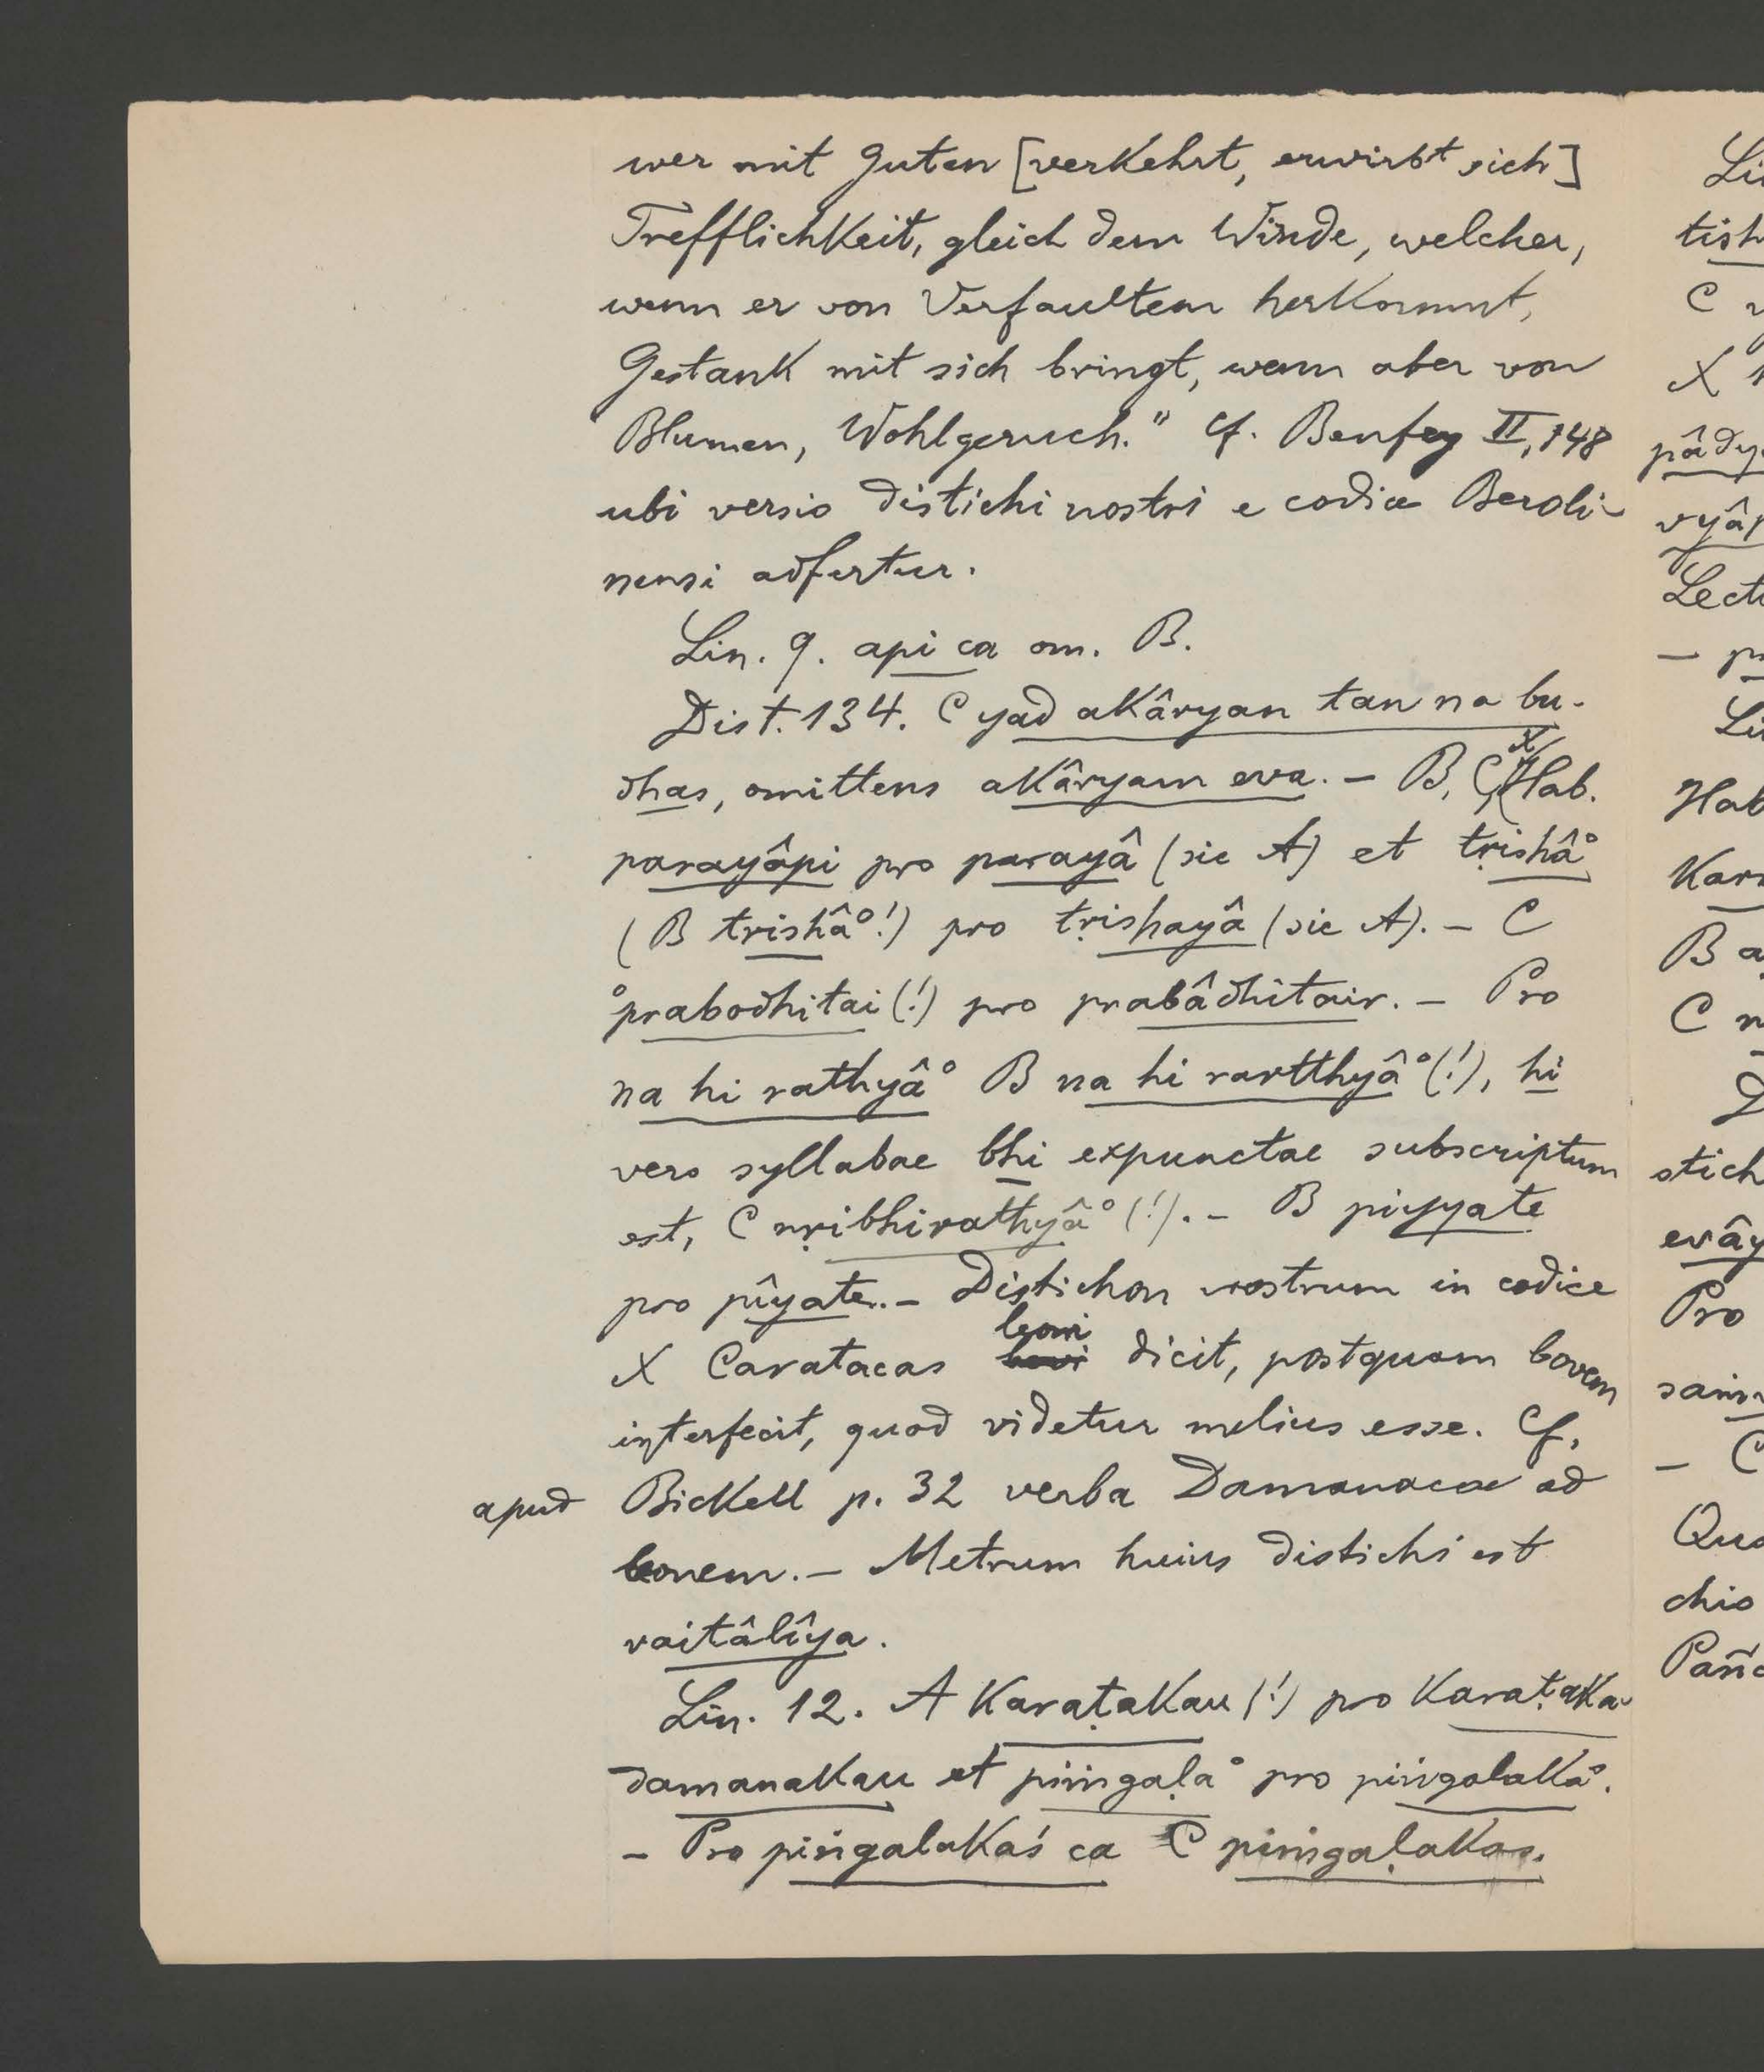 wer mit Guten [verkehrt, erwirbt sich]
Trefflichkeit, gleich dem Winde, welcher,
wenn er von Verfaultem herkommt,
Gestank mit sich bringt, wenn aber von
Blumen, Wohlgeruch." Cf. Benfey II, 148
ubi versio distichi nostri e codice Beroli-
nensi adfertur.
Lin. 9. api ca om. B.
Dist. 134. C yad akâryan tan na bu-
dhas, omittens akâryam eva. – B, C, X, Hab.
parayâpi pro parayâ (sic A) et tṛishâ°
(B trishâ°!) pro tṛishayâ (sic A). – C
°prabodhitai (!) pro prabâdhitair. – Pro
na hi rathyâ° B na hi rartthyâ° (!), hi
vero syllabae bhi expunctae subscriptum
est, C nṛibhirathyâ° (!). – B piyyate
pro pîyate. – Distichon nostrum in codice
X Caratacas leoni dicit, postquam bovem
interfecit, quod videtur melius esse. Cf.
apud Bickell p. 32 verba Damanacae ad
leonem. – Metrum huius distichi est
vaitâlîya.
Lin. 12. A Karaṭakau (!) pro Karaṭaka-
damanakau et piṁgaḷa° pro piṅgalaka°.
– Pro piṅgalakaś ca C piṁgaḷakas.
Li
tish
C
X
pâdy
vyâp
Lect
– p
Li
Hab
Kar
B a
C n
D
stich
evâ
Pro
saṁ
– C
Qu
chio
Pañc